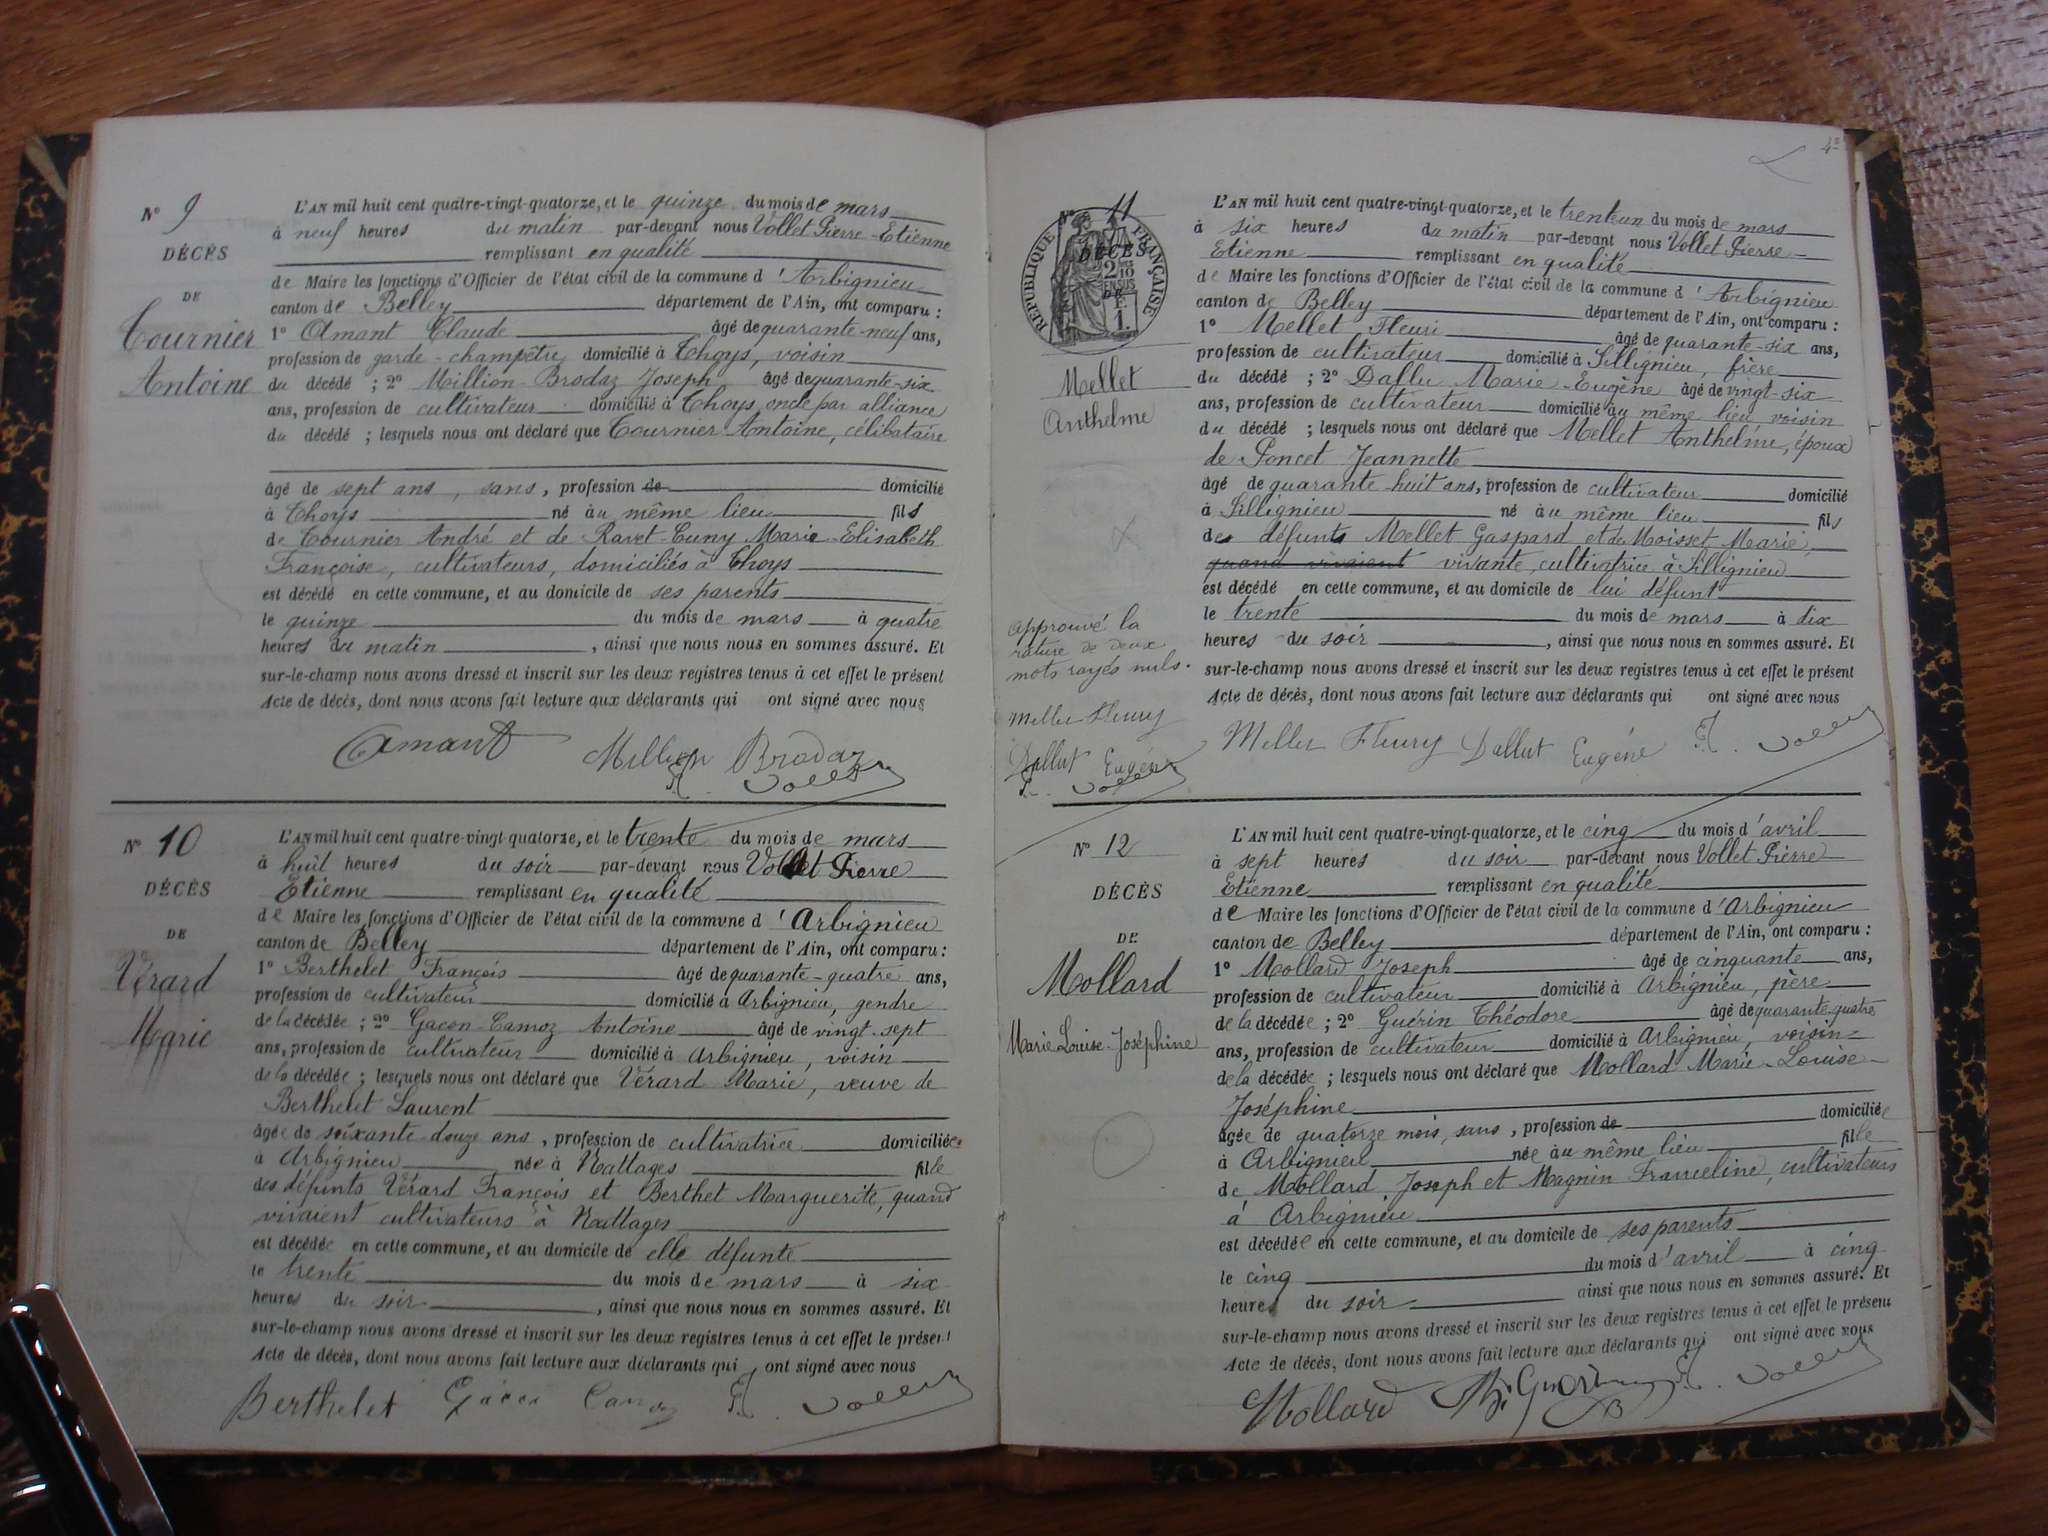 N° 9
DÉCÈS
DE
Tournier
Antoine
L'AN mil huit cent quatre-vingt-quatorze, et le quinze du mois de mars
à neuf heures du matin par-devant nous Vollet Pierre-Etienne
remplissant en qualité
de Maire les fonctions d'Officier de l'état civil de la commune d'Arbignieu
canton de Belley département de l'Ain, ont comparu :
1° Amant Claude âgé de quarante-neuf ans,
profession de garde-champêtre domicilié à Thoys, voisin
du décédé ; 2° Million-Brodaz Joseph âgé de quarante-six
ans, profession de cultivateur domicilié à Thoys, oncle par alliance
du décédé ; lesquels nous ont déclaré que Tournier Antoine, célibataire
âgé de sept ans, sans, profession de domicilié
à Thoys né au même lieu fils
de Tournier André et de Ravet-Cuny Marie-Elisabeth
Françoise, cultivateurs, domiciliés à Thoys
est décédé en cette commune, et au domicile de ses parents
le quinze du mois de mars à quatre
heures du matin, ainsi que nous nous en sommes assuré. Et
sur-le-champ nous avons dressé et inscrit sur les deux registres tenus à cet effet le présent
Acte de décès, dont nous avons fait lecture aux déclarants qui ont signé avec nous
Amant Million Brodaz
Vollet
N° 10
DÉCÈS
DE
Vérard
Marie
L'AN mil huit cent quatre-vingt-quatorze, et le trente du mois de mars
à huit heures du soir par-devant nous Vollet Pierre
Etienne remplissant en qualité
de Maire les fonctions d'Officier de l'état civil de la commune d'Arbignieu
canton de Belley département de l'Ain, ont comparu :
1° Berthelet François âgé de quarante-quatre ans,
profession de cultivateur domicilié à Arbignieu, gendre
de la décédée ; 2° Gacon-Camoz Antoine âgé de vingt-sept
ans, profession de cultivateur domicilié à Arbignieu, voisin
de la décédée ; lesquels nous ont déclaré que Vérard Marie, veuve de
Berthelet Laurent
âgée de soixante-douze ans, profession de cultivatrice domiciliée
à Arbignieu née à Nattages fille
des défunts Vérard François et Berthet Marguerite, quand
vivaient cultivateurs à Nattages
est décédée en cette commune, et au domicile de elle défunte
le trente du mois de mars à six
heures du soir, ainsi que nous nous en sommes assuré. Et
sur-le-champ nous avons dressé et inscrit sur les deux registres tenus à cet effet le présent
Acte de décès, dont nous avons fait lecture aux déclarants qui ont signé avec nous
Berthelet Gacon Camoz Vollet
4e
RÉPUBLIQUE FRANÇAISE
2/10 EN SUS
1 F.
N° 11
DÉCÈS
DE
Mellet
Anthelme
L'AN mil huit cent quatre-vingt-quatorze, et le trente un du mois de mars
à six heures du matin par-devant nous Vollet Pierre-
Etienne remplissant en qualité
de Maire les fonctions d'Officier de l'état civil de la commune d'Arbignieu
canton de Belley département de l'Ain, ont comparu :
1° Mellet Fleuri âgé de quarante-six ans,
profession de cultivateur domicilié à Sillignieu, frère
du décédé ; 2° Dallu Marie-Eugène âgé de vingt-six
ans, profession de cultivateur domicilié au même lieu voisin
du décédé ; lesquels nous ont déclaré que Mellet Anthelme, époux
de Poncet Jeannette
âgé de quarante-huit ans, profession de cultivateur domicilié
à Sillignieu né au même lieu fils
des défunts Mellet Gaspard et de Moisset Marie,
quand vivaient vivante, cultivatrice à Sillignieu
est décédé en cette commune, et au domicile de lui défunt
le trente du mois de mars à dix
heures du soir, ainsi que nous nous en sommes assuré. Et
sur-le-champ nous avons dressé et inscrit sur les deux registres tenus à cet effet le présent
Acte de décès, dont nous avons fait lecture aux déclarants qui ont signé avec nous
Mellet Fleury Dallut Eugène Vollet
Approuvé la
rature de deux
mots rayés nuls.
Mellet Fleury
Dallut Eugène
Vollet
N° 12
DÉCÈS
DE
Mollard
Marie Louise-Joséphine
L'AN mil huit cent quatre-vingt-quatorze, et le cinq du mois d'avril
à sept heures du soir par-devant nous Vollet Pierre
Etienne remplissant en qualité
de Maire les fonctions d'Officier de l'état civil de la commune d'Arbignieu
canton de Belley département de l'Ain, ont comparu :
1° Mollard Joseph âgé de cinquante ans,
profession de cultivateur domicilié à Arbignieu, père
de la décédée ; 2° Guérin Théodore âgé de quarante-quatre
ans, profession de cultivateur domicilié à Arbignieu, voisin
de la décédée ; lesquels nous ont déclaré que Mollard Marie-Louise-
Joséphine
âgée de quatorze mois, sans, profession de domiciliée
à Arbignieu née au même lieu fille
de Mollard Joseph et Magnin Franceline, cultivateurs
à Arbignieu
est décédée en cette commune, et au domicile de ses parents
le cinq du mois d'avril à cinq
heures du soir ainsi que nous nous en sommes assuré. Et
sur-le-champ nous avons dressé et inscrit sur les deux registres tenus à cet effet le présent
Acte de décès, dont nous avons fait lecture aux déclarants qui ont signé avec nous
Mollard Th. Guérin Vollet